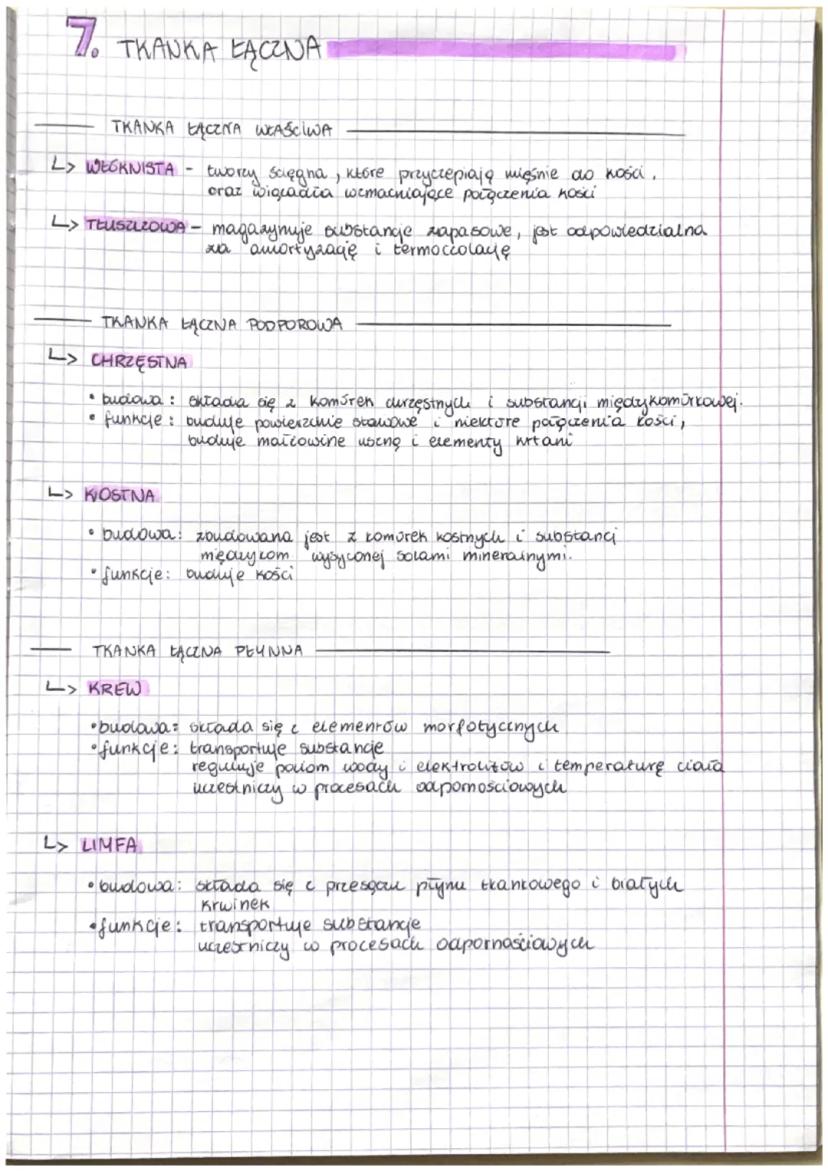 7. TKANKA ŁĄCZNA
TKANKA ŁĄCZNA WŁAŚCIWA
↳ WŁÓKNISTA - tworzy ścięgna, które przyczepiają mięśnie do kości,
oraz więzadła wzmacniające połączenia kości
↳ TŁUSZCZOWA - magazynuje substancje zapasowe, jest odpowiedzialna
za amortyzację i termoizolację
TKANKA ŁĄCZNA PODPOROWA
↳ CHRZĘSTNA
• budowa: składa się z komórek chrzęstnych i substancji międzykomórkowej.
• funkcje: buduje powierzchnie stawowe i niektóre połączenia kości,
buduje małżowinę uszną i elementy krtani
↳ KOSTNA
• budowa: zbudowana jest z komórek kostnych i substancj
międzykom wysyconej solami mineralnymi.
• funkcje: buduje kości
TKANKA ŁĄCZNA PŁYNNA
↳ KREW
• budowa: składa się z elementów morfotycznych
• funkcje: transportuje substancje
reguluje poziom wody i elektrolitów i temperaturę ciała
uczestniczy w procesach odpornościowych
↳ LIMFA
• budowa: składa się z przesączu płynu tkankowego i białych
krwinek
• funkcje: transportuje substancje
uczestniczy w procesach odpornościowych